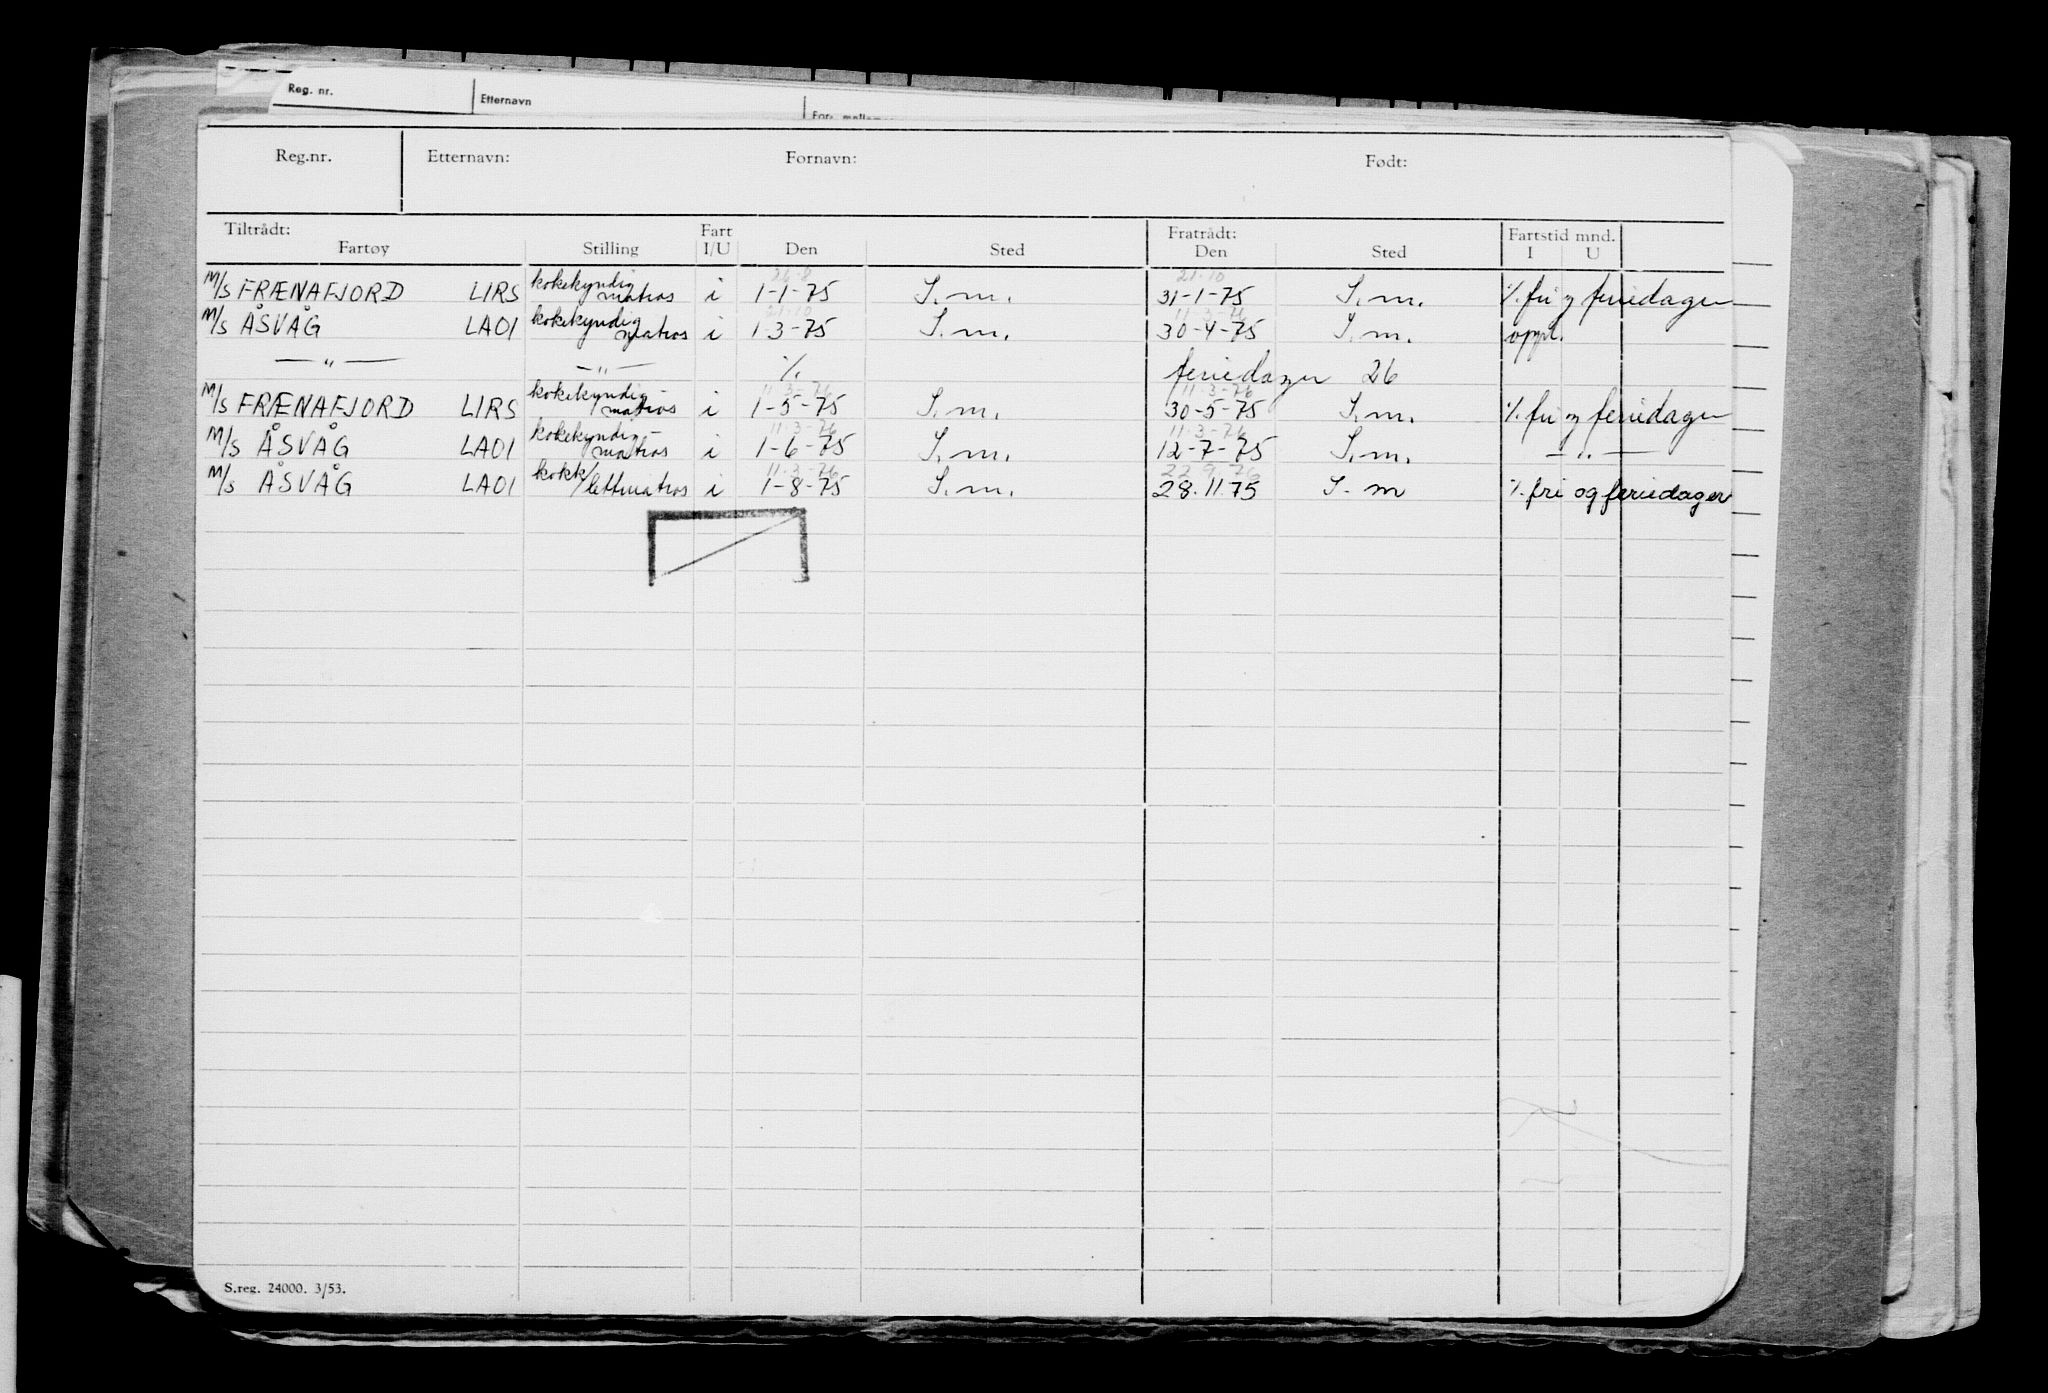 Reg. nr. Etternavn
Reg.nr. Etternavn: Fornavn: Født:
Tiltrådt: Fart Fratrådt: Fartstid mnd.
Fartøy Stilling I/U Den Sted Den Sted I U
26-8 21-10
M/S FRÆNAFJORD LIRS kokekyndig matros i 1-1-75 S.m. 31-1-75 S.m. %. fri og feriedager
21-10 11-3-76
M/S ÅSVÅG LAOI kokekyndig matros i 1-3-75 S.m. 30-4-75 S.m. oppl.
— " — — " — %. feriedager 26
11-3-76 11-3-76
M/S FRÆNAFJORD LIRS kokekyndig- matros i 1-5-75 S.m. 30-5-75 S.m. %. fri og feriedager
11-3-76 11-3-76
M/S ÅSVÅG LAOI kokekyndig- matros i 1-6-75 S.m. 12-7-75 S.m. — " —
11-3-76 22.9.76
M/S ÅSVÅG LAOI kokk/lettmatros i 1-8-75 S.m. 28.11.75 S.m %. fri og feriedager
S.reg. 24000. 3/53.